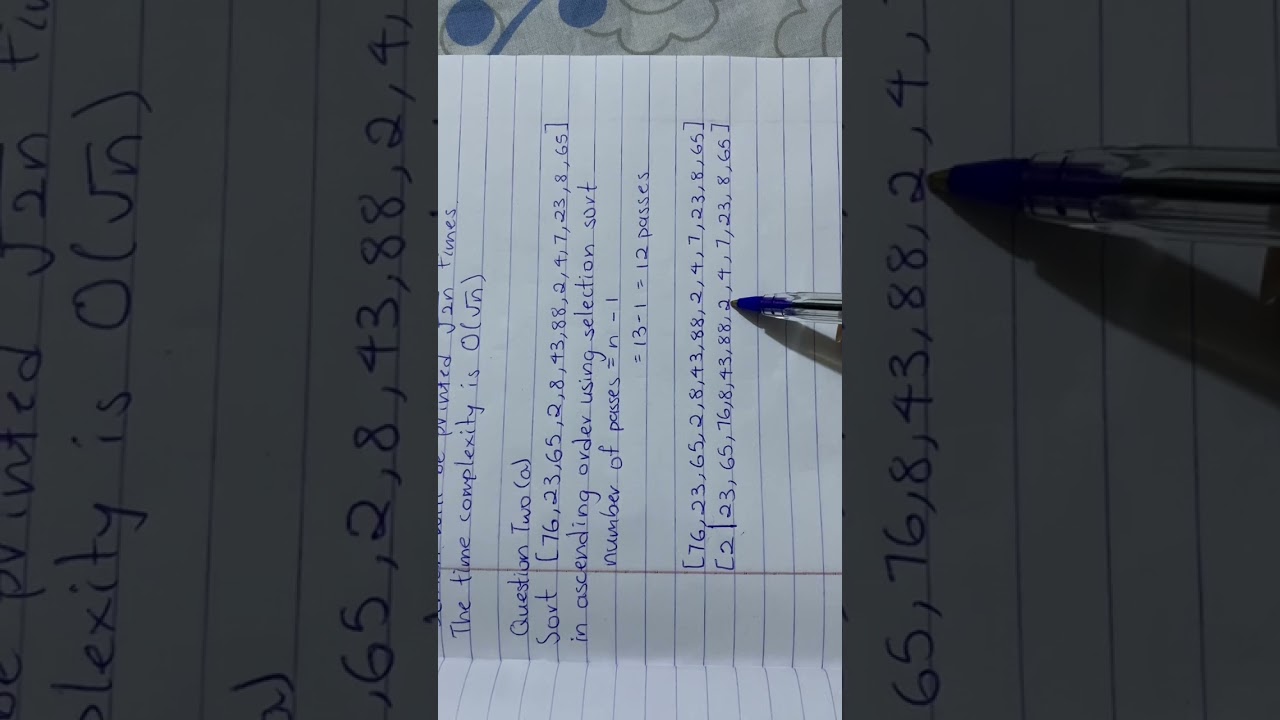 The time complexity is O(√n)
Question Two(a)
Sort [76,23,65,2,8,43,88,2,4,7,23,8,65]
in ascending order using selection sort
number of passes = n - 1
= 13 - 1 = 12 passes
[76,23,65,2,8,43,88,2,4,7,23,8,65]
[2|23,65,76,8,43,88,2,4,7,23,8,65]